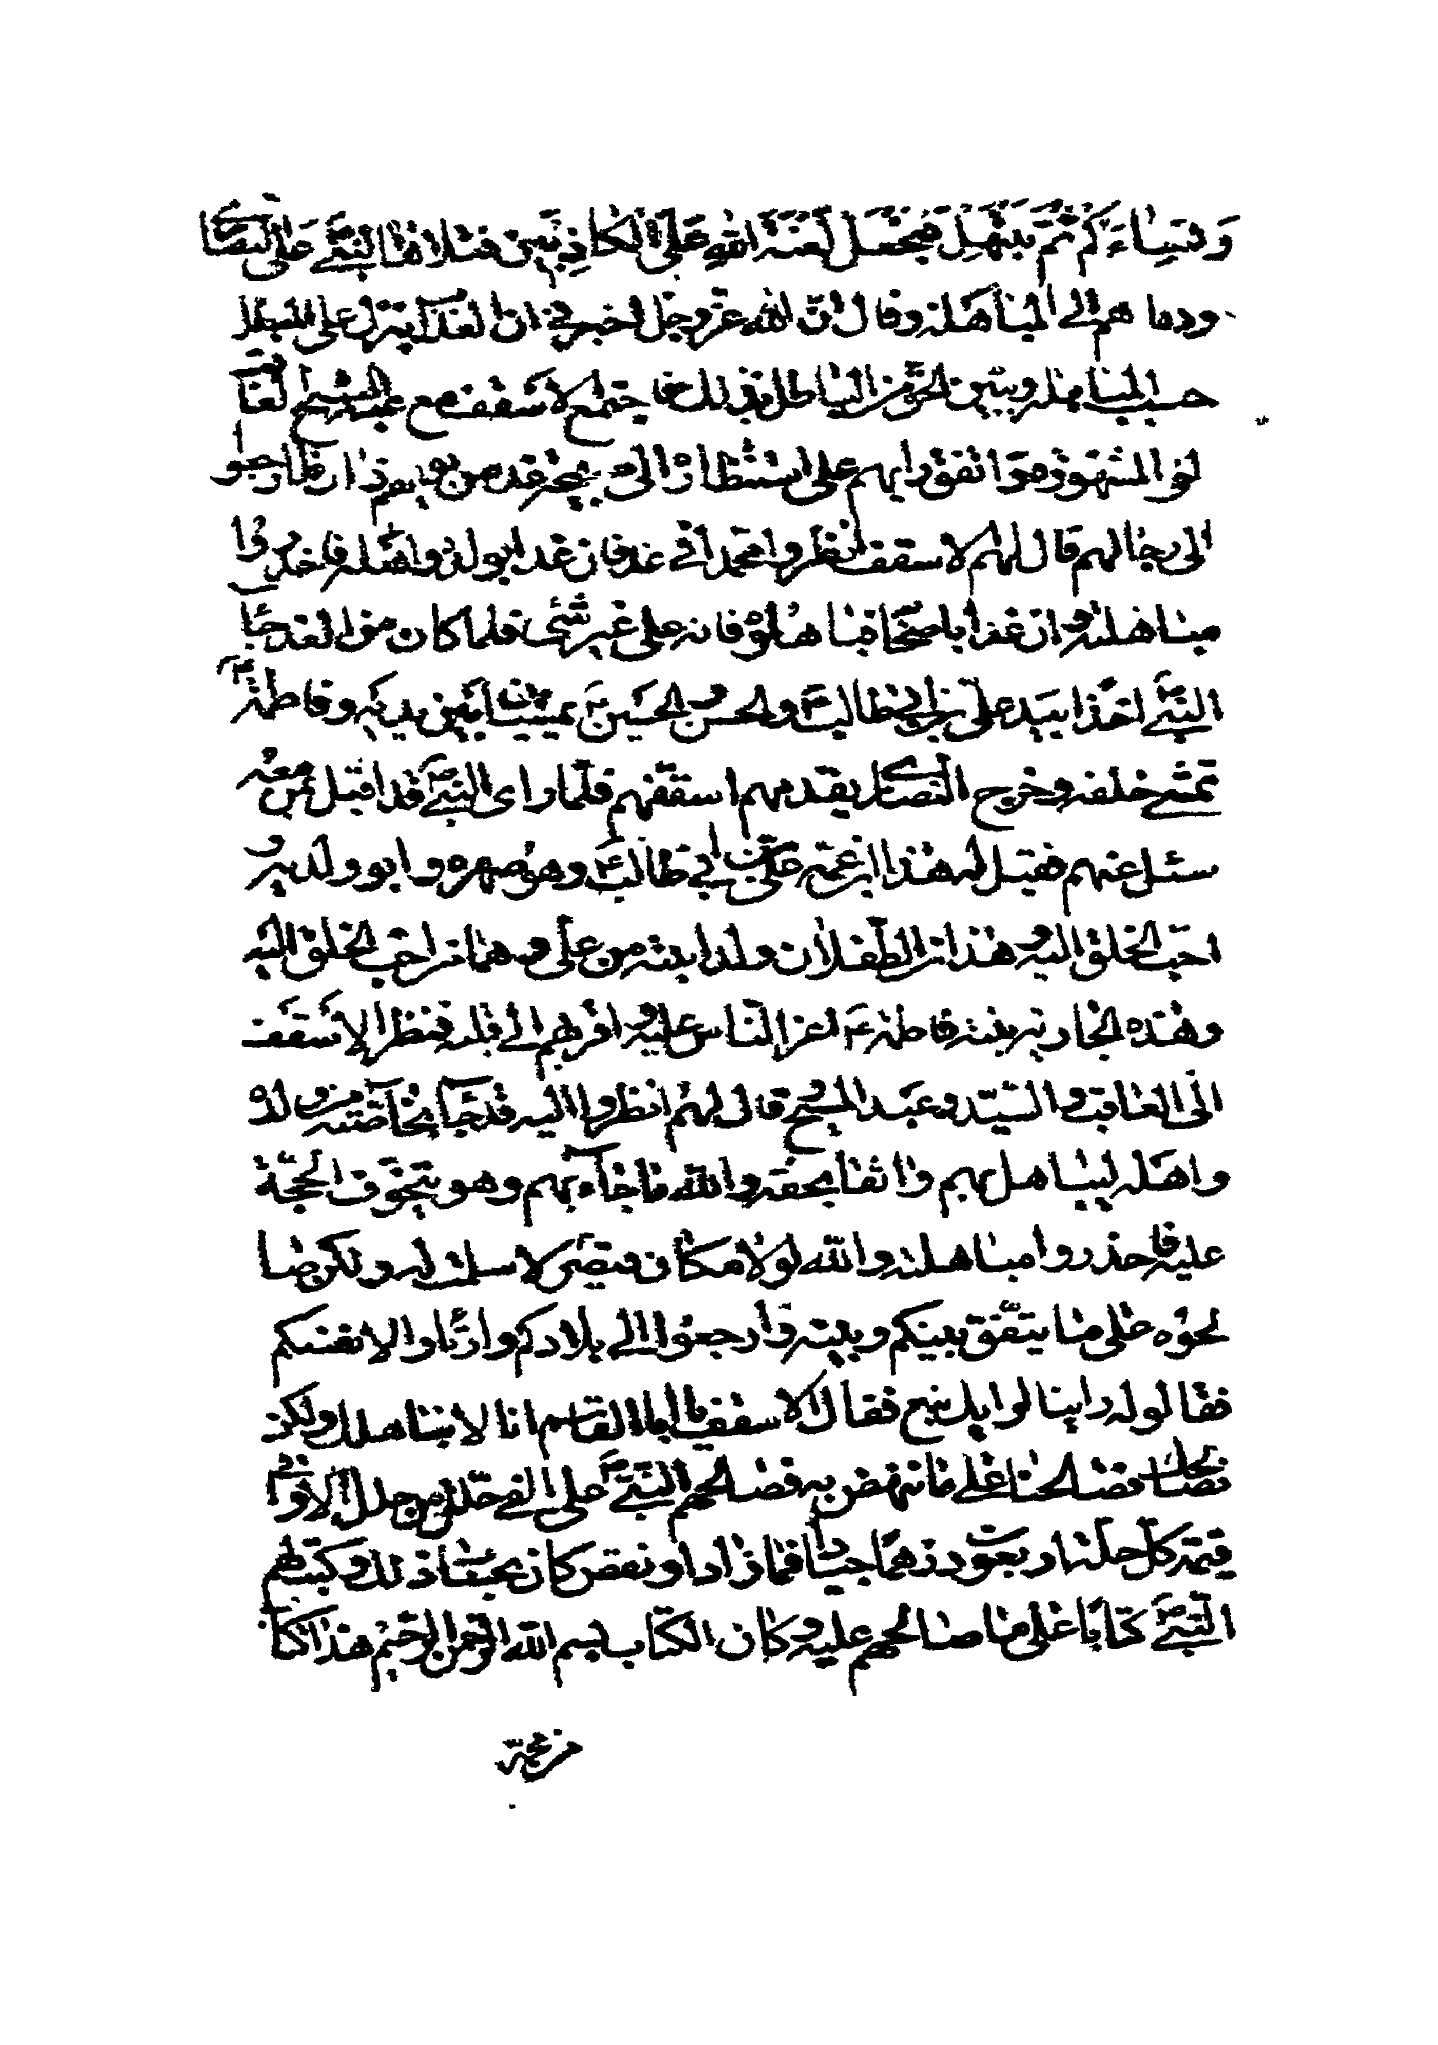 وَنِسَاءَكُمْ ثُمَّ نَبْتَهِلْ فَنَجْعَلْ لَعْنَةَ اللهِ عَلَى الْكَاذِبِينَ فتلاها النبيّ ص على النصارى
ودعاهم الى المباهلة وقال انّ الله عزّ وجل اخبرني ان العذاب ينزل على المبطل
عقيب المباهلة ويبين الحق من الباطل بذلك فاجتمع الاسقف مع عبد المسيح والعاقب
المشهور فاتفق رايهم على استنظاره الى صبيحة غد من يومهم ذا فلما رجعوا
الى رجالهم قال لهم الاسقف انظروا محمدا في غد فان غدا بولده واهله فاحذروا
مباهلته وان غدا باصحابه فباهلوه فانه على غير شئ فلما كان من الغد جاء
النبيّ ص اخذا بيد عليّ بن ابي طالب ع والحسن والحسين ع يمشيان بين يديه وفاطمة ع
تمشي خلفه وخرج النصارى يقدمهم اسقفهم فلمّا راى النبيّ ص قد اقبل بمن معه
سئل عنهم فقيل له هذا ابن عمه عليّ بن ابي طالب ع وهو صهره وابو ولديه و
احبّ الخلق اليه وهذان الطفلان ولدا بنته من علي وهما من احب الخلق اليه
وهذه الجارية بنته فاطمة ع اعز الناس عليه واقربهم الى قلبه فنظر الاسقف
الى العاقب والسيّد وعبد المسيح وقال لهم انظروا اليه قد جاء بخاصّته من ولده
واهله ليباهل بهم واثقا بحقه والله ما جاء بهم وهو يتخوّف الحجّة
عليه فاحذروا مباهلته والله لولا مكان قيصر لاسلمت له ولكن صا
لحوه على ما يتّفق بينكم وبينه وارجعوا الى بلادكم وارتادوا لانفسكم
فقالوا له راينا لرايك تبع فقال الاسقف يا ابا القاسم انا لا نباهلك ولكن
نصالحك فصالحنا على ما ننهض به فصالحهم النبيّ ص على الفي حلة من حلل الاواقي
قيمة كلّ حلة اربعون درهما جيادا فما زاد او نقص كان بحساب ذلك وكتب لهم
النبيّ ص كتابا على ما صالحهم عليه وكان الكتاب بسم الله الرحمن الرحيم هذا كتاب
من محمد